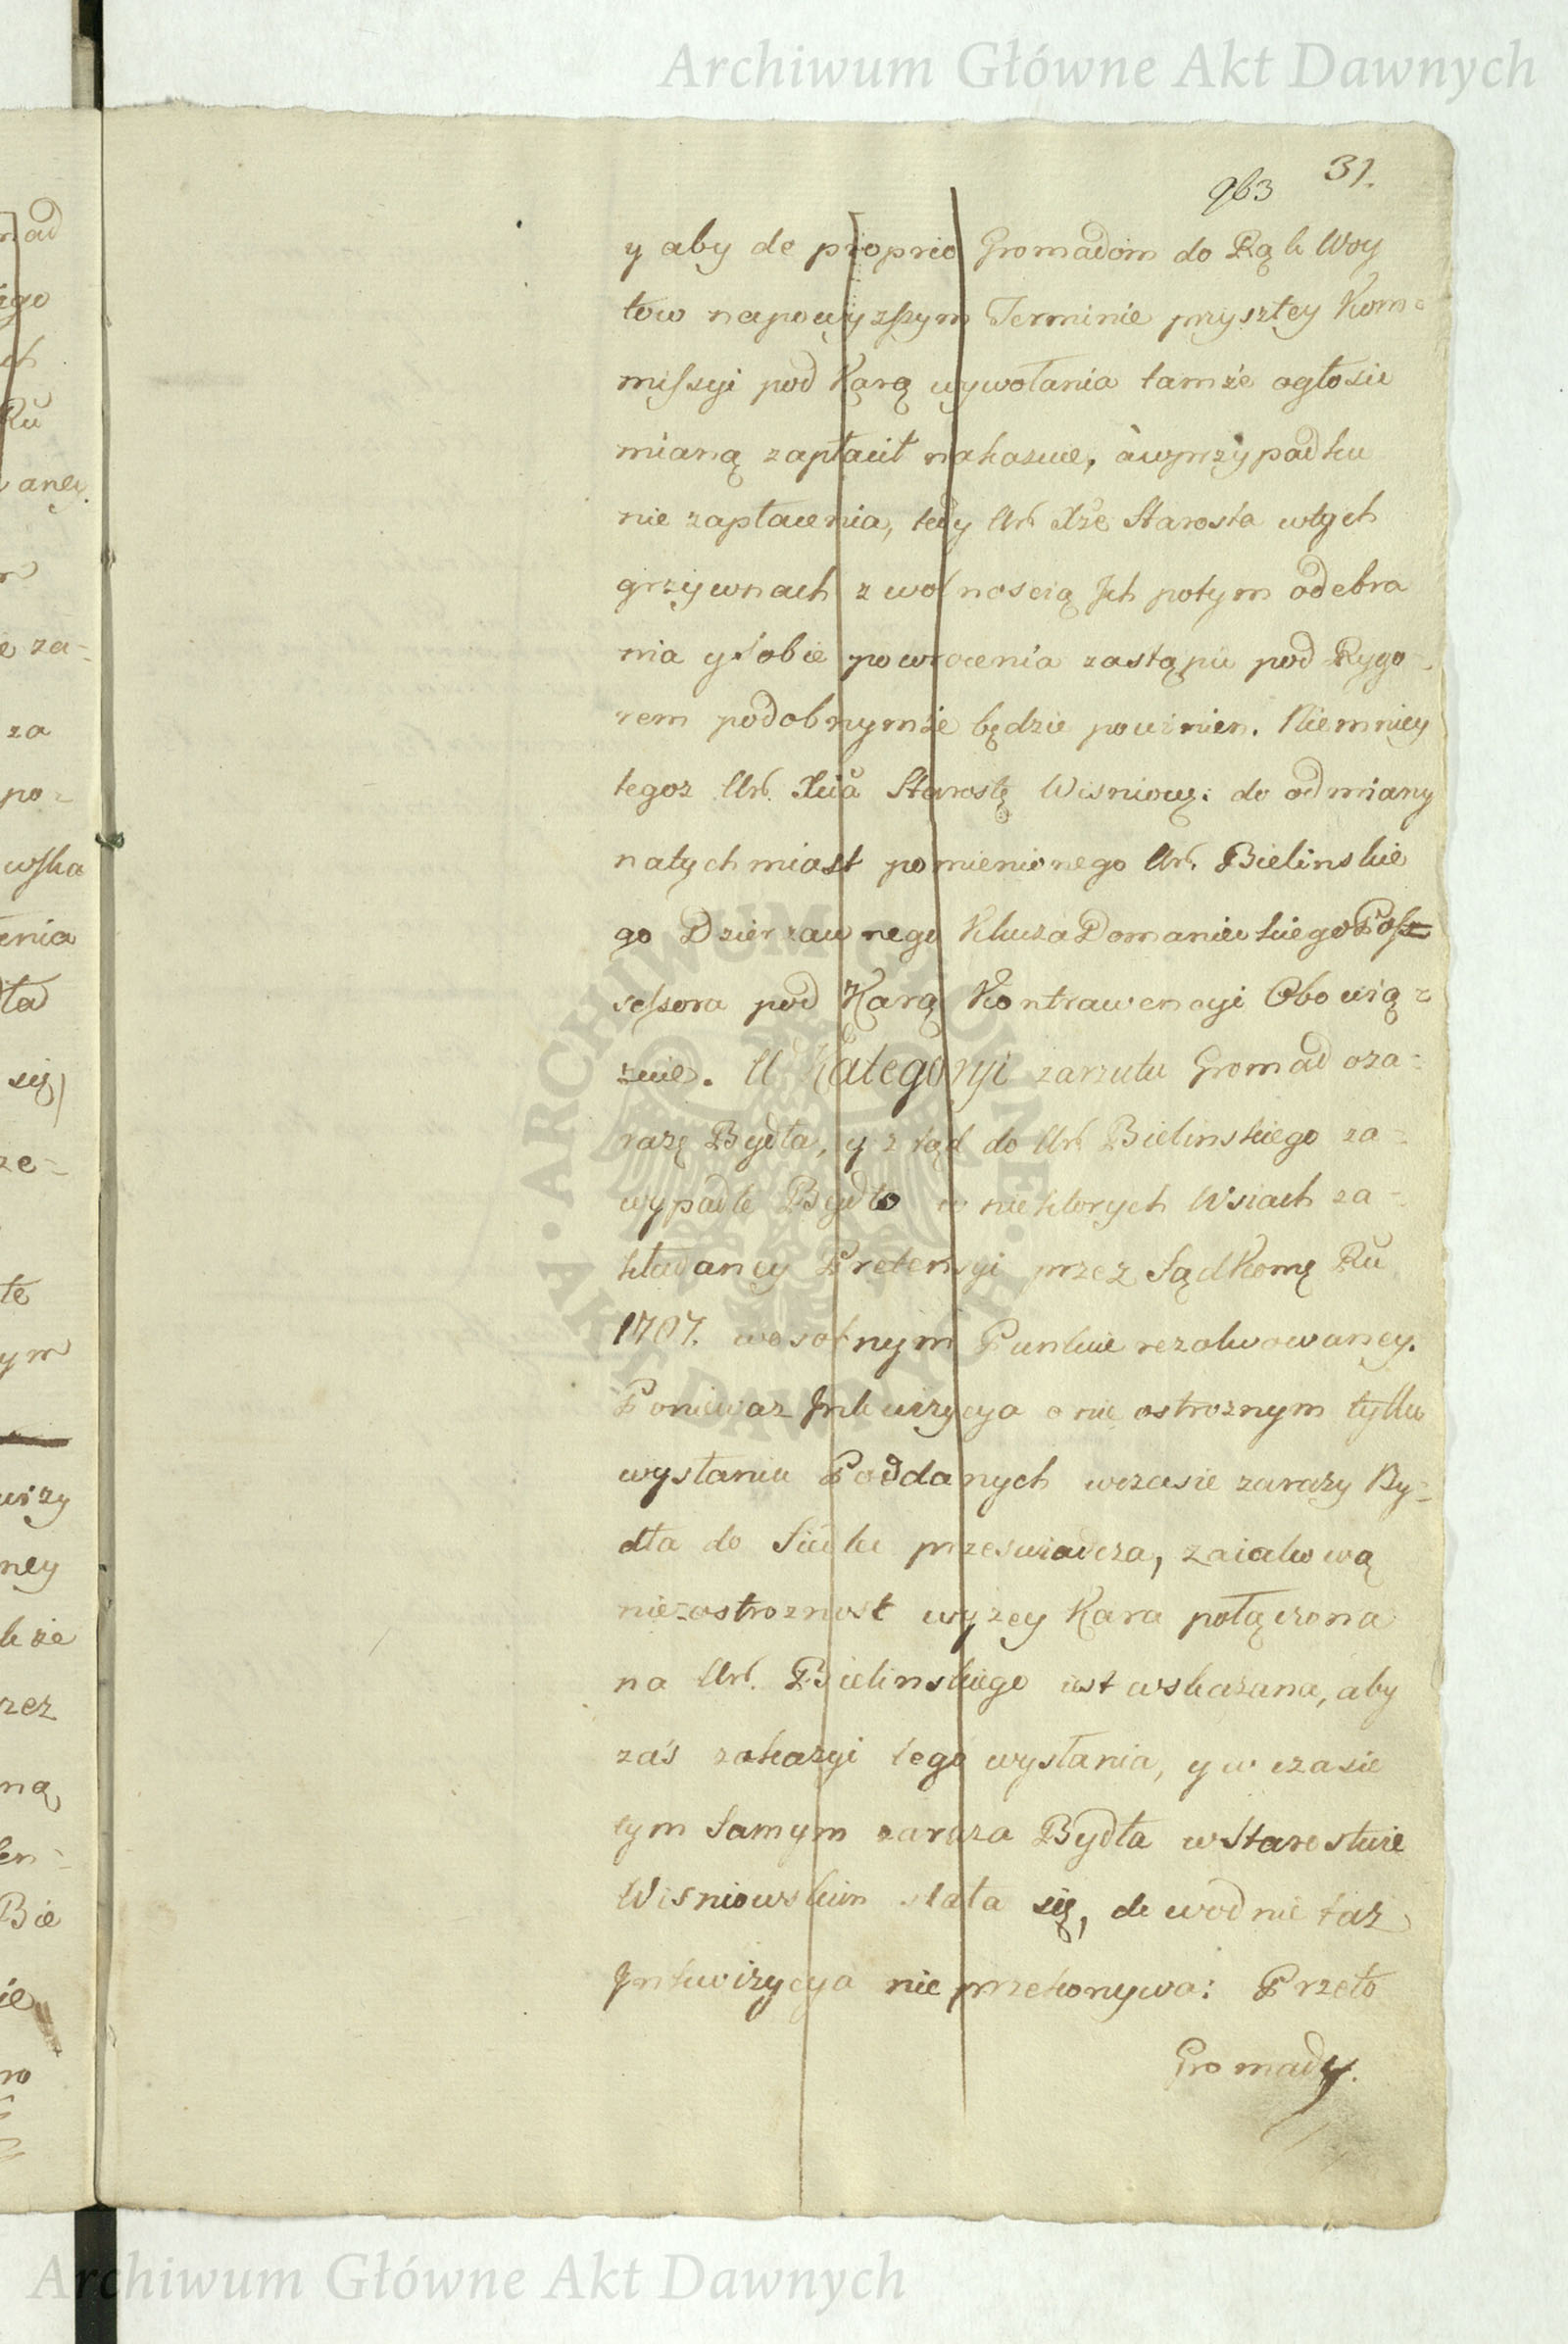 Archiwum Główne Akt Dawnych
963 31.
y aby de proprio Gromadom do Rąk Woy
tow napowyzszym Terminie przyszłey Kom=
missyi pod Karą wywołania tamże ogłosić
mianą zapłacił nakazuie, àwprzypadku
nie zapłacenia, tedy Ur. Xże Starosta wtych
grzywnach z wolnoscią Jch potym odebra
nia ysobie powrocenia zastąpić pod Rygo=
rem podobnymże będzie powinien. Niemniey
tegoz Ur. Xcia Starostę Wisniow: do odmiany
natychmiast pomienionego Ur. Bielinskie
go Dzierzawnego Klucza Domanickiego Poss
sessora pod Karą Kontrawencyi Obowią=
zuie. W Kategoryi zarzutu Gromad oza=
razę Bydła, y ztąd do Ur. Bielinskiego za=
wypadłe Bydło w niektorych Wsiach za=
kładaney Pretensyi przez Sąd Komę Ru
1767. wosobnym Punkcie rezolwowaney.
Poniewaz Jnkwizycya o nie ostroznym tylko
wysłaniu Poddanych wczasie zarazy By=
dła do Siedlec przeswiadcza, zaiakową
nieostroznosć wyzey Kara połączona
na Ur. Bielinskiego iest wskazana, aby
zaś zokazyi tego wysłania, y w czasie
tym samym zaraza Bydła wStarostwie
Wisniowskim stała się, dowodnie taz
Jnkwizycya nie przekonywa: Przeto
Gromady.
Archiwum Główne Akt Dawnych